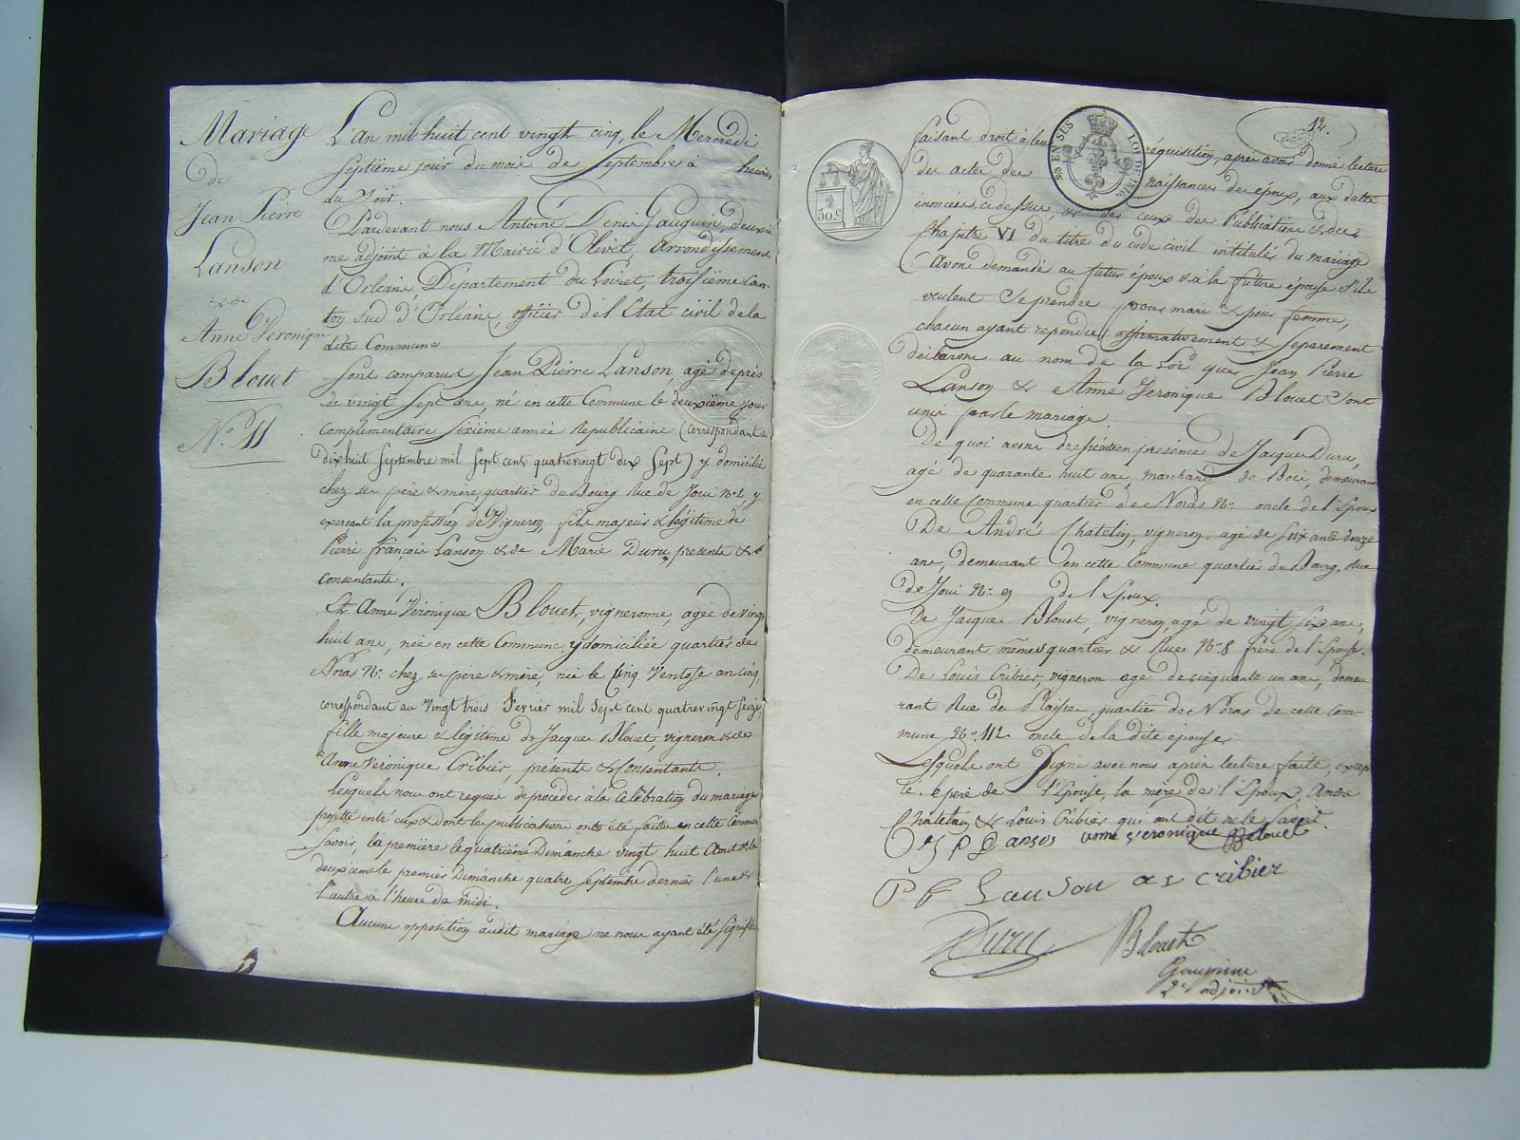 Mariage
de
Jean Pierre
Lanson
et de
Anne Véronique
Blouet
N.° 11
L'an mil huit cent vingt cinq, le Mercredi
septième jour du mois de Septembre à heures
du soir.
Pardevant nous Antoine Denis Gauguin, deuxiè
me adjoint à la Mairie d'Olivet, arrondissement
d'Orléans Département du Loiret, troisième can-
ton sud d'Orléans, officier de l'Etat civil de la
dite Commune
sont comparus Jean Pierre Lanson, agé de près
de vingt sept ans, né en cette Commune le deuxième jour
complementaire sixième année Républicaine (correspondant à
dix huit septembre mil sept cent quatrevingt dix sept) y domicilié
chez ses père & mère, quartier du Bourg Rue de Joui n.° 2, y
exerçant la profession de Vigneron, fils majeur & légitime de
Pierre françois Lanson & de Marie Duru, présents &
consentants.
Et Anne Véronique Blouet, vigneronne, agée de vingt
huit ans, née en cette Commune, y domiciliée quartier de
Noras N.° chez ses père & mère, née le cinq Ventose an cinq,
correspondant au Vingt trois Fevrier mil sept cent quatrevingt seize
fille majeure & légitime de Jacques Blouet, vigneron & de
Anne Véronique Cribier, présents & Consentants.
Lesquels nous ont requis de procéder à la célébration du mariage
projetté entr'eux & dont les publications ont été faites en cette Commune
Savoir, la première le quatrième Dimanche vingt huit Aout & la
deuxième le premier Dimanche quatre septembre dernier l'une &
l'autre à l'heure de midi.
Aucune opposition audit mariage ne nous ayant été signifiée
12.
faisant droit à leur réquisition, après avoir donné lecture
des actes de naissances des époux, aux dates
énoncées ci dessus & de ceux des Publications & du
Chapitre VI du titre du code civil intitulé du mariage
Avons demandé au futur époux & à la future épouse s'ils
veulent se prendre pour mari & pour femme,
chacun ayant répondu affirmativement & séparement
déclarons au nom de la Loi que Jean Pierre
Lanson & Anne Véronique Blouet sont
unis par le mariage.
De quoi avons dressé acte en présence de Jacques Duru,
agé de quarante huit ans, marchand de Bois, demeurant
en cette Commune quartier de Noras N.° oncle de l'Epoux
De André Chatelin, vigneron agé de soixante douze
ans, demeurant en cette Commune quartier du Bourg, Rue
de Joui N.° 9 de l'Epoux.
De Jacques Blouet, vigneron, agé de vingt six ans,
demeurant mêmes quartier & Rues N.° 8 frère de l'Epouse.
De Louis Cribier, vigneron agé de cinquante un ans, demeu
rant Rue de quartier de Noras de cette Com-
mune N.° 112 oncle de la dite épouse
Lesquels ont signé avec nous après lecture faite, excep
té le père de l'Epouse, la mère de l'Epoux, André
Chatelin & Louis Cribier qui ont dit ne le savoir.
J P Lanson anne veronique Blouet
P F Lanson a v cribier
Duru Blouet
Gauguin
2e adjoint